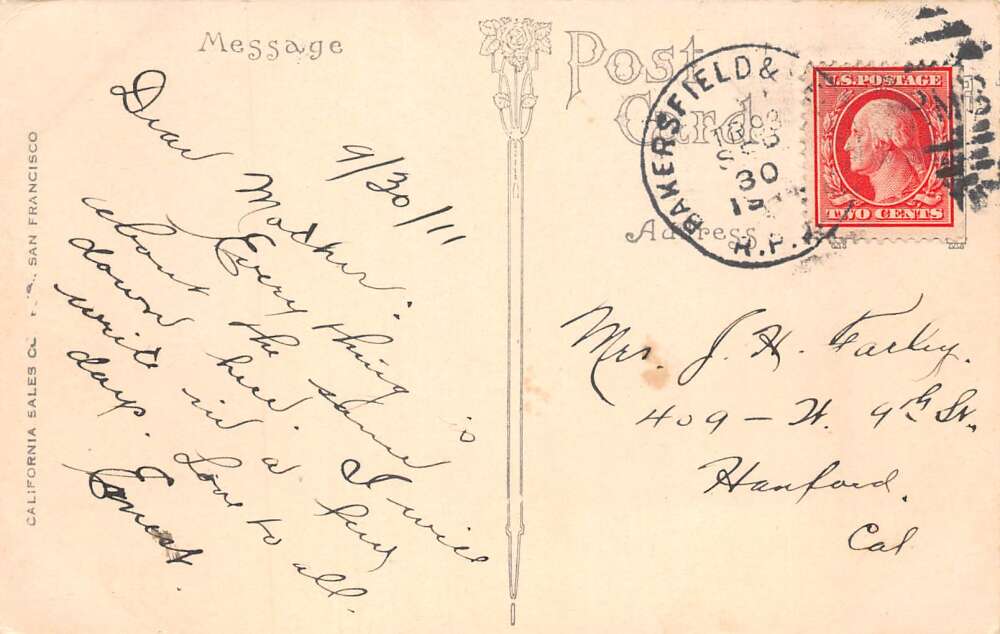 Message
Post
Card
Address
CALIFORNIA SALES CO. SAN FRANCISCO
9/30/11
Dear Mother:
Every thing is
about the same
down here. I will
write in a few
days. Love to all.
Ernest.
BAKERSFIELD &
SEP
30
19
R.P.O.
U.S. POSTAGE
TWO CENTS
RMS
Mrs. J. H. Farley.
409 - W. 9th St.
Hanford.
Cal